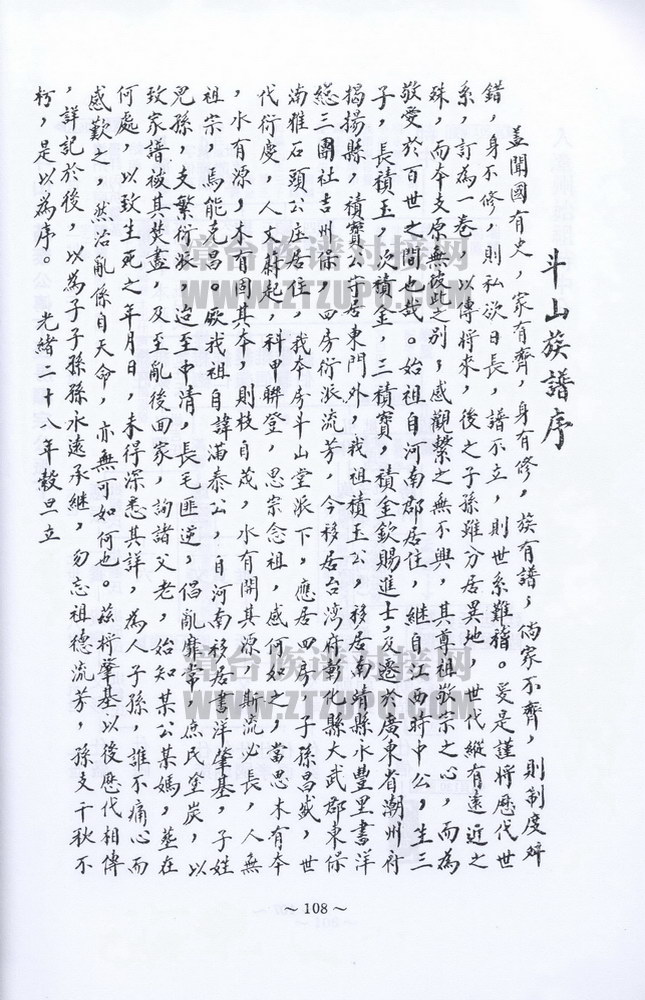 斗山族譜序
蓋聞國有史，家有齊，身有修，族有譜；倘家不齊，則制度
錯，身不修，則私欲日長，譜不立，則世系難稽。爰是謹將歷代世
系，訂為一卷，以傳將來，後之子孫雖分居異地，世代縱有遠近之
殊，而本支原無彼此之別，感觀繫之無不興，其尊祖敬宗之心，而為
敬愛於百世之間也哉。始祖自河南郡居住，繼自江西時中公，生三
子，長積玉，次積金，三積寶，積金欽賜進士，及遷於廣東省潮州府
揭揚縣，積寶公守居東門外，我祖積玉公，移居南靖縣永豐里書洋
總三團社吉州保，四房衍派流芳，今移居台湾府彰化縣大武郡東保
湳雅石頭公庄居住，我本房斗山堂派下，應居四房，子孫昌盛，世
代衍慶，人文蔚起，科甲聯登，思宗念祖，感何如之，當思木有本
，水有源，木有固其本，則枝自茂，水有開其源，斯流必長，人無
祖宗，焉能克昌。厥我祖自諱滿泰公，自河南移居書洋肇基，子姓
兒孫，支繁衍派，迨至中清，長毛匪逆，倡亂靡常，庶民塗炭，以
致家譜被其焚盡，及至亂後回家，詢諸父老，始知某公某媽，塟在
何處，以致生死之年月日，未得深悉其詳，為人子孫，誰不痛心而
感歎之，然治亂係自天命，亦無可如何也。茲將肇基以後歷代相傳
，詳記於後，以為子子孫孫永遠承継，勿忘祖德流芳，孫支千秋不
朽，是以為序。　光緒二十八年穀旦立
～108～
漳台族谱对接网
WWW.ZTZUPU.COM
漳台族谱对接网
WWW.ZTZUPU.COM